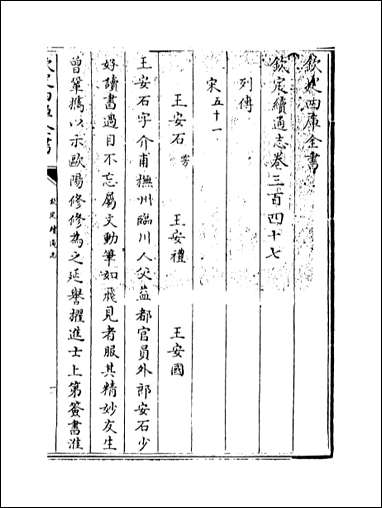 欽定四庫全書
欽定續通志卷三百四十七
列傳
宋五十一
王安石 雱 王安禮 王安國
王安石字介甫撫州臨川人父益都官員外郎安石少
好讀書過目不忘屬文動筆如飛見者服其精妙友生
曾鞏攜以示歐陽修修為之延譽擢進士上第簽書淮
欽定四庫全書
欽定續通志
一